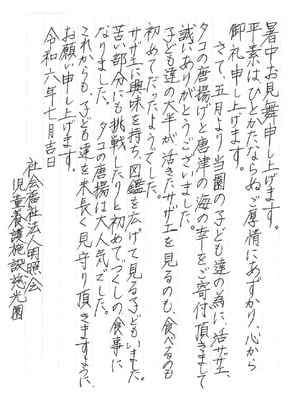 暑中お見舞申し上げます。
平素はひとかたならぬご厚情にあずかり、心から
御礼申し上げます。
さて、五月より当園の子ども達の為に、活サザエ、
タコの唐揚げと唐津の海の幸をご寄付頂きまして
誠にありがとうございました。
子ども達の大半が活きたサザエを見るのも、食べるのも
初めてだったようでした。
サザエに興味を持ち、図鑑を広げて見る子どももいました。
苦い部分にも挑戦したりと初めてづくしの食事に
なりました。タコの唐揚は大人気でした。
これからも、子ども達を末長く見守り頂きますように、
お願い申し上げます。
令和六年七月吉日
社会福祉法人明照会
児童養護施設慈光園